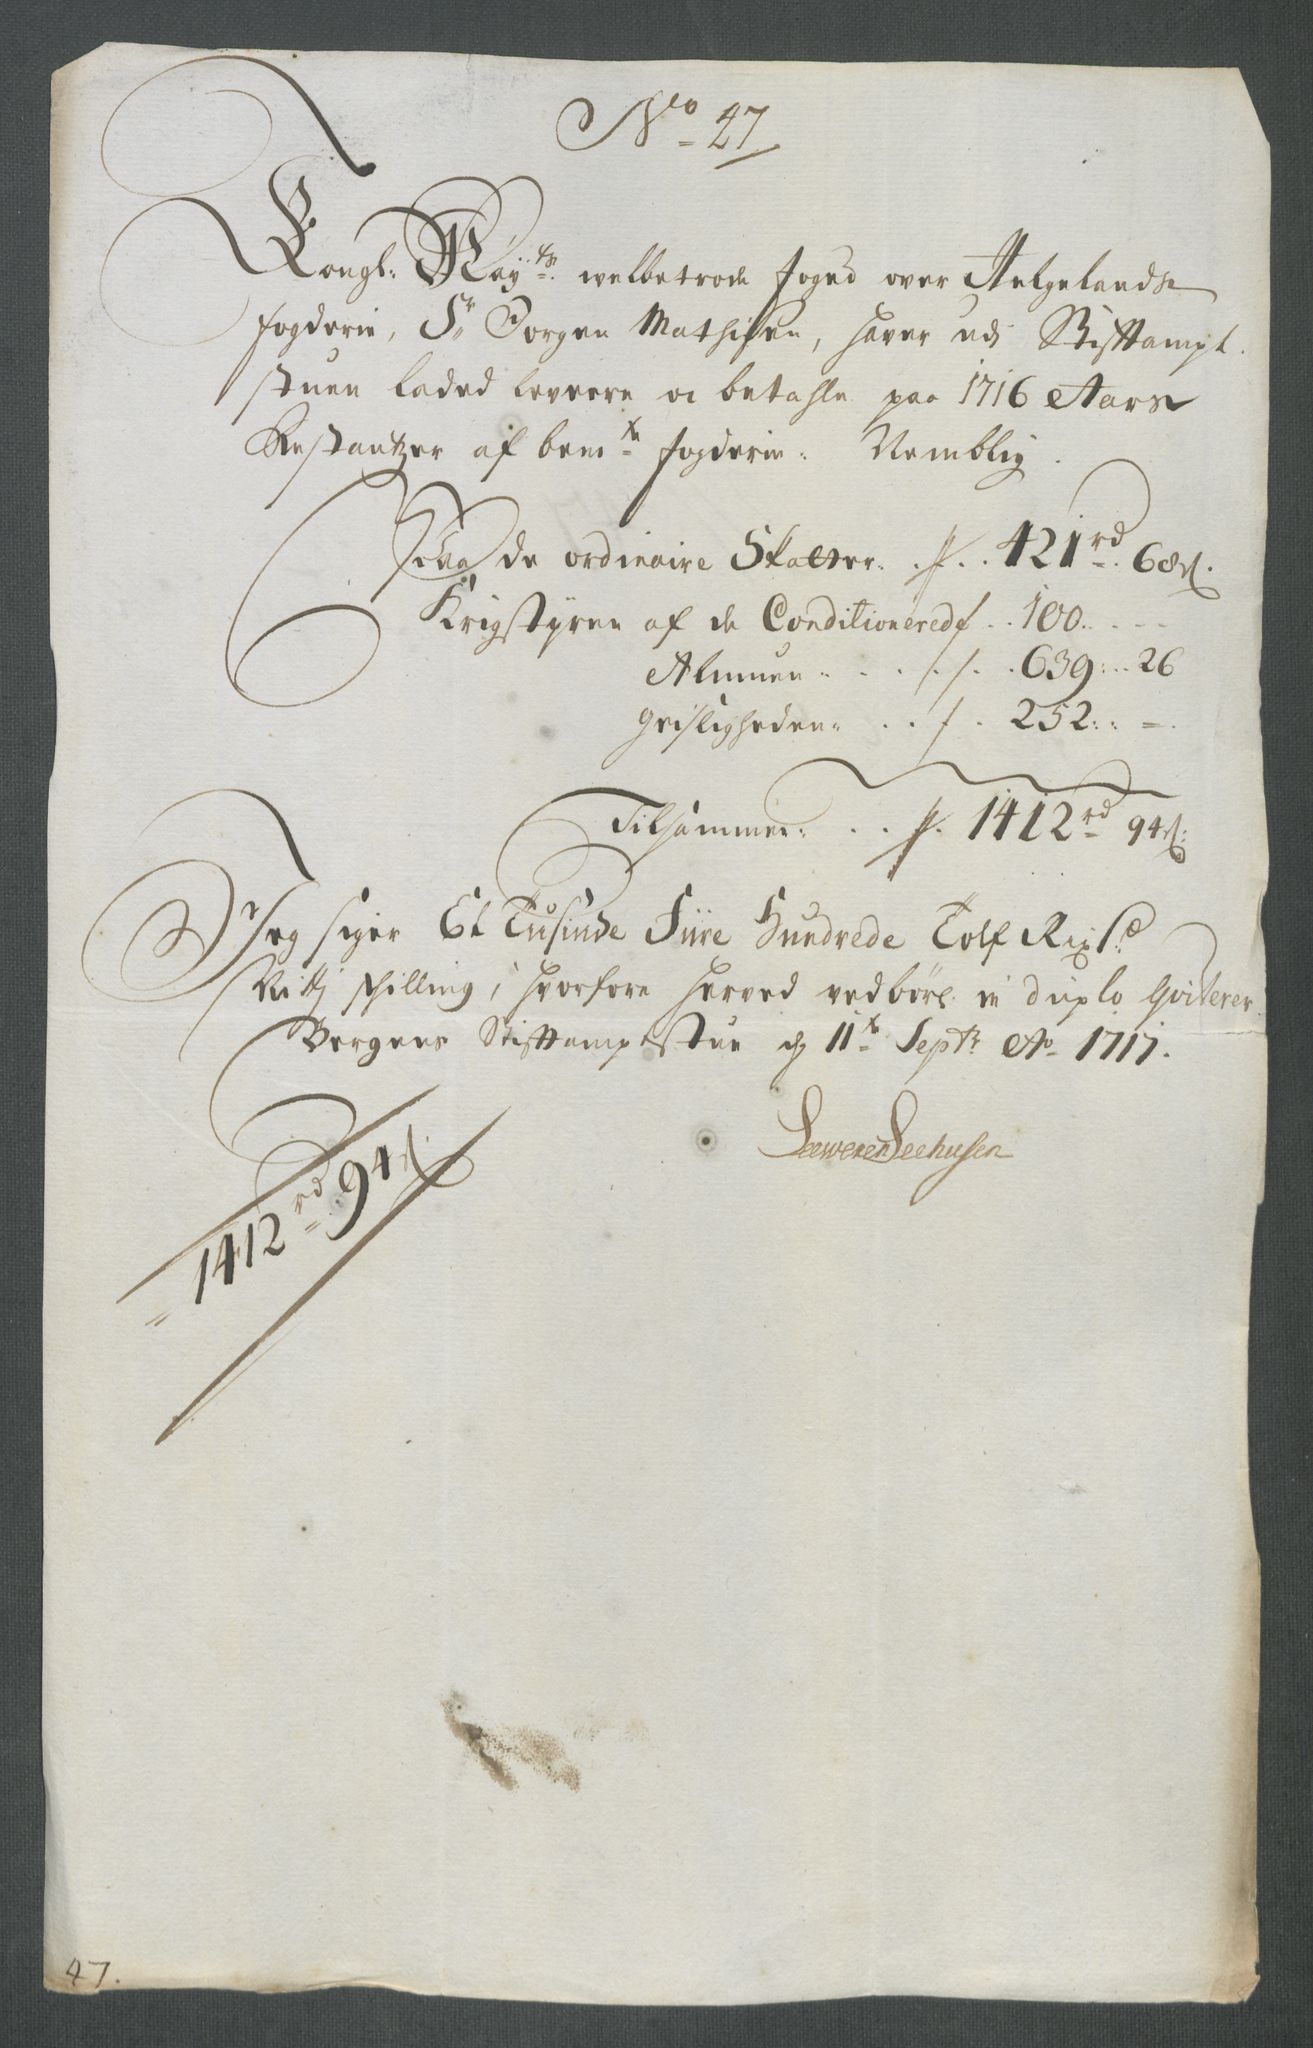 No 47
Kongl: Maytz. welbetrode foged over Helgelands
fogderie, Sr Jørgen Mathisen, haver udi Stiftampt
stuen laded levere oc betahle paa 1716 Aars
Restantzer af bemte fogderie. Nemblig.
de ordinaire Skatter. . 421 rd. 68 s.
Krigstyren af de Conditionerede . . 100. - -
Almuen . . . . 639: . 26
Geistligheden. . . . 252: : -
Tilsammen. . . . 1412 rd 94 s:
Jeg siger Et Tusinde Fiire Hundrede Tolf Rixd
Nitti schilling, hvorfore herved vedbørl: in duplo Qviterer.
Bergens Stiftamptstue d 11te Septr Ao 1717.
Seweren Seehusen
1412 rd 94 s.
47.